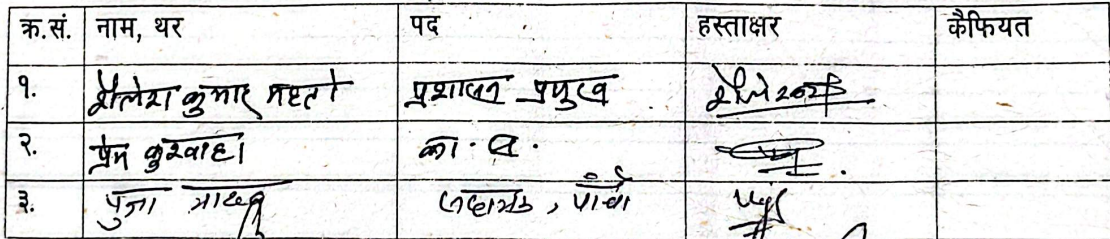 क्र.सं. नाम, थर पद हस्ताक्षर कैफियत
१. शैलेश कुमार महतो प्रशासन प्रमुख
२. प्रेम कुश्वाहा का. स.
३. पुजा सहायक, पाँचौ